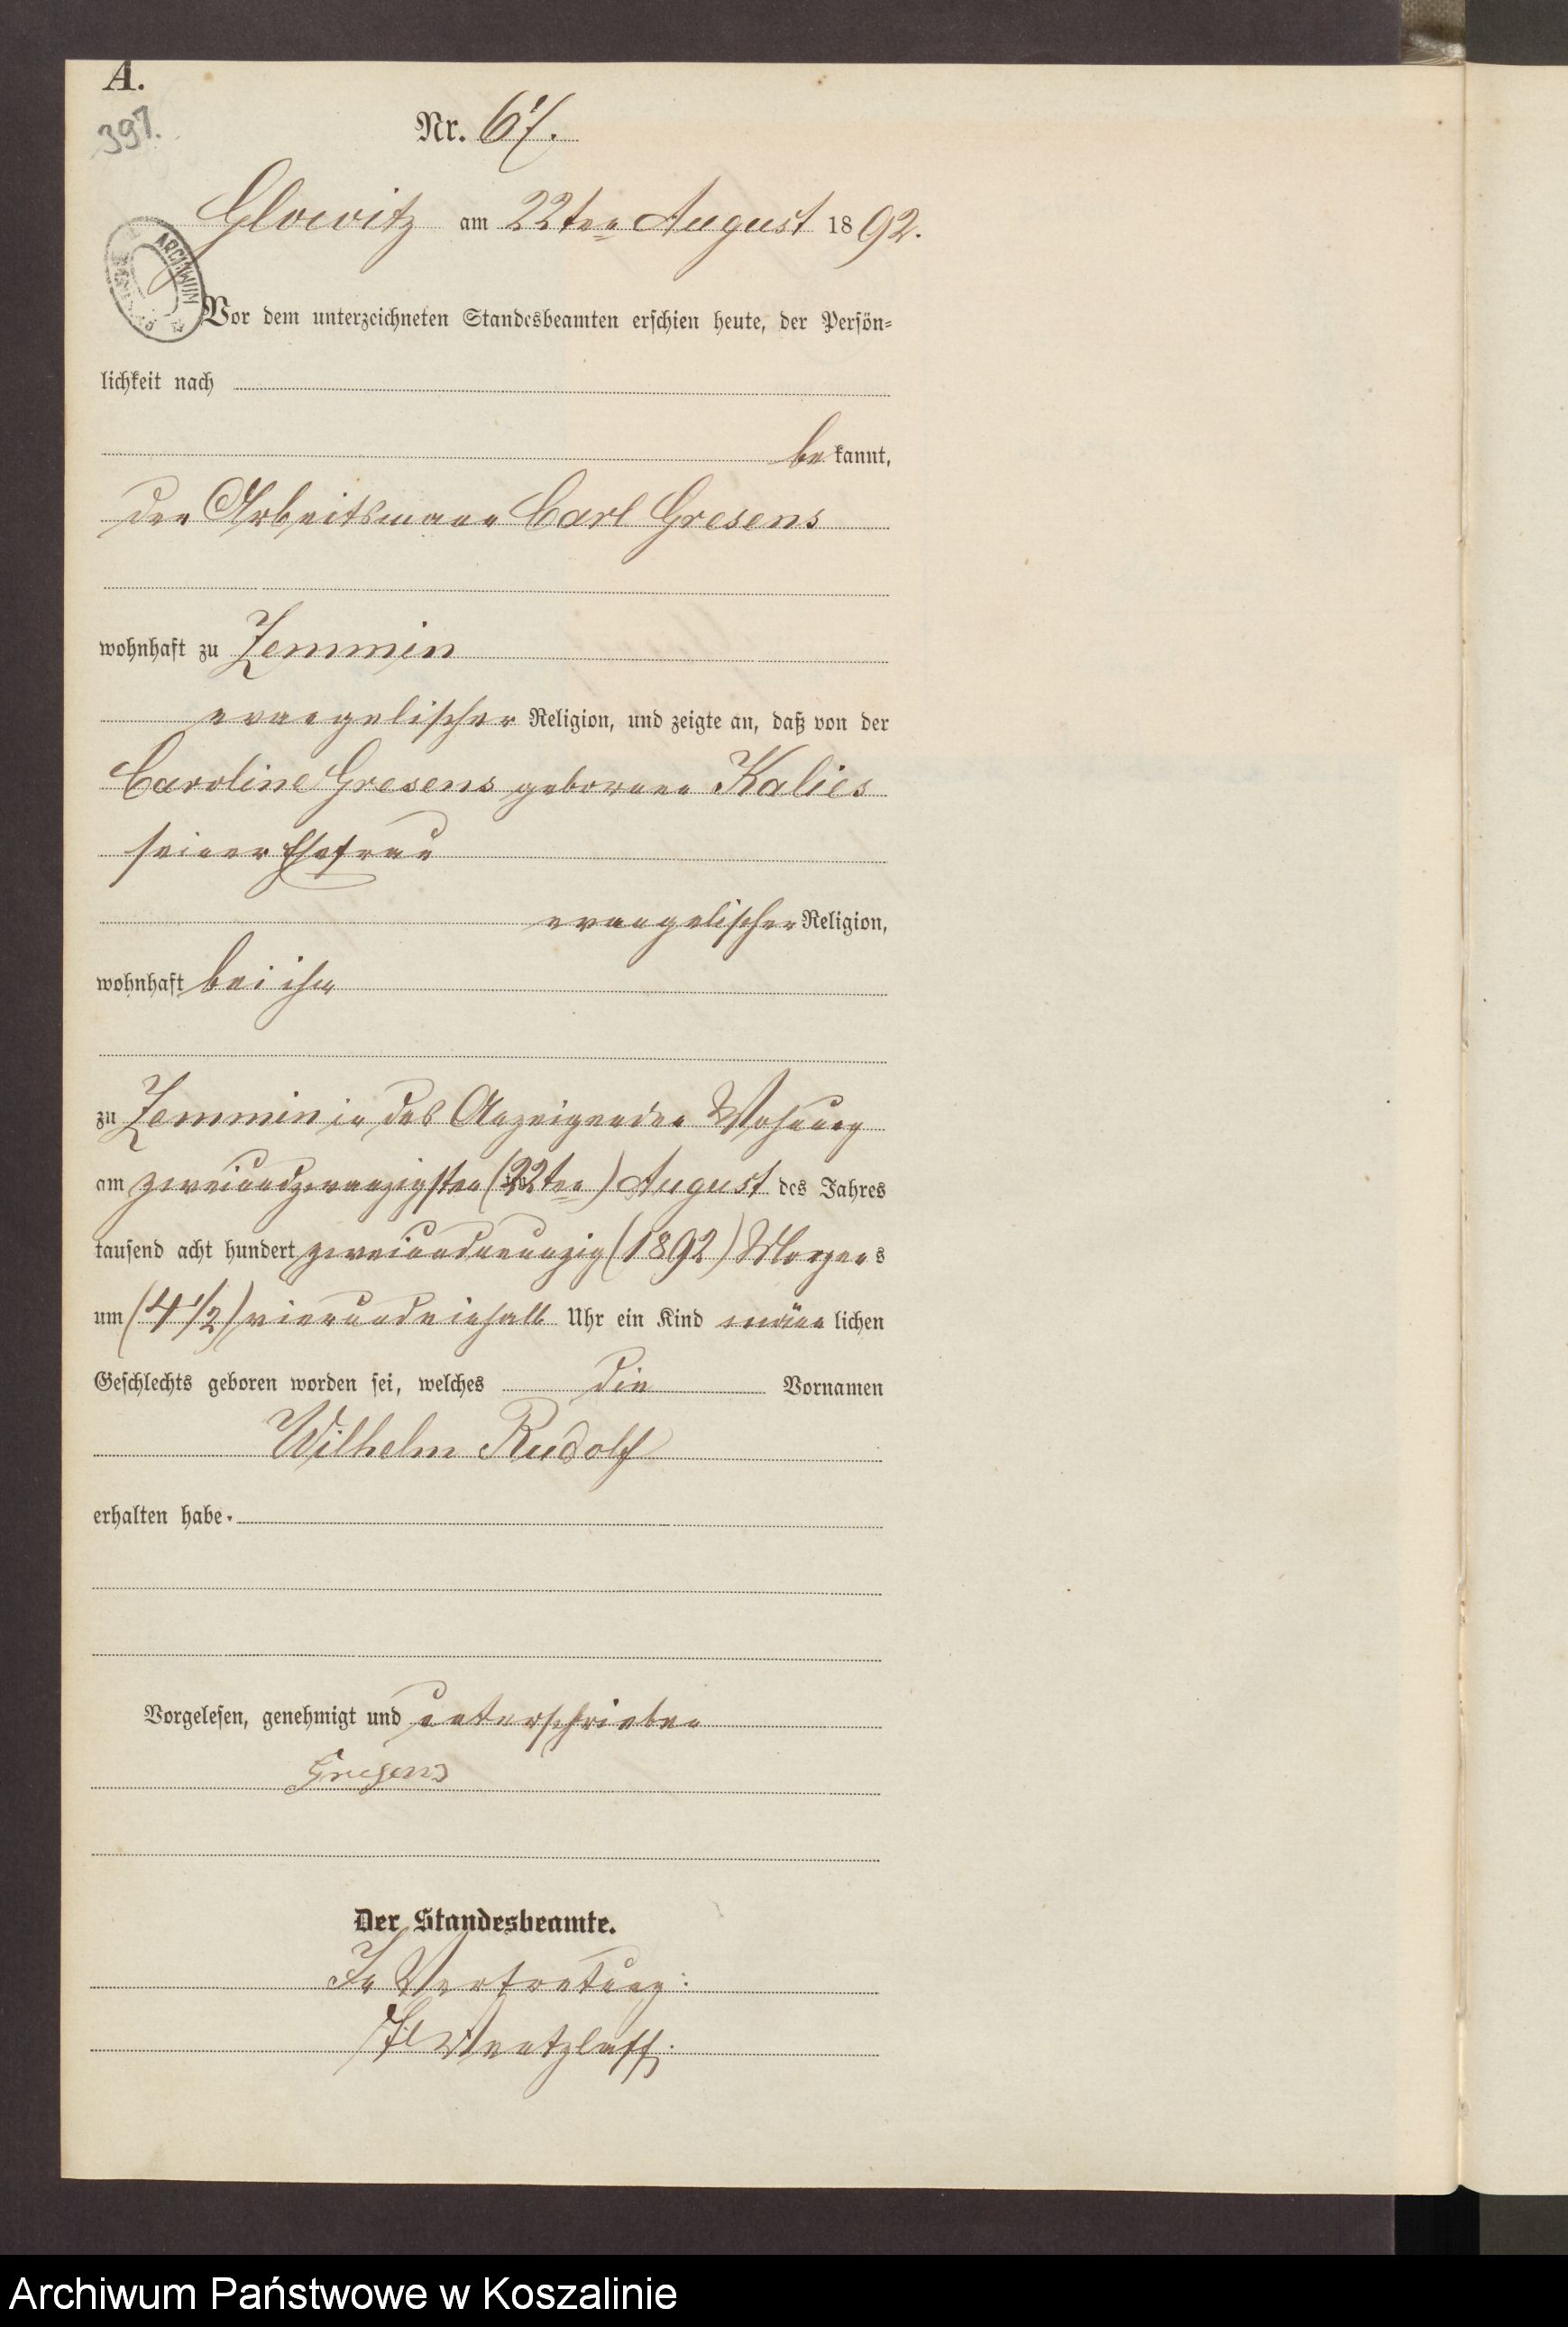 A.
397.
Nr. 67.
Glowitz am 22ten August 1892.
ARCHIWUM
Vor dem unterzeichneten Standesbeamten erschien heute, der Persön=
lichkeit nach
bekannt,
der Arbeitsmann Carl Gresens
wohnhaft zu Zemmin
evangelischer Religion, und zeigte an, daß von der
Caroline Gresens geborenen Kalies
seiner Ehefrau
evangelischer Religion,
wohnhaft bei ihm
zu Zemmin in des Anzeigenden Wohnung
am zweiundzwanzigsten (22ten) August des Jahres
tausend acht hundert zweiundneunzig (1892) Morgens
um (4 1/2) vierundeinhalb Uhr ein Kind männlichen
Geschlechts geboren worden sei, welches die Vornamen
Wilhelm Rudolf
erhalten habe.
Vorgelesen, genehmigt und unterschrieben
Gresens
Der Standesbeamte.
In Vertretung:
Wentzlaff.
Archiwum Państwowe w Koszalinie